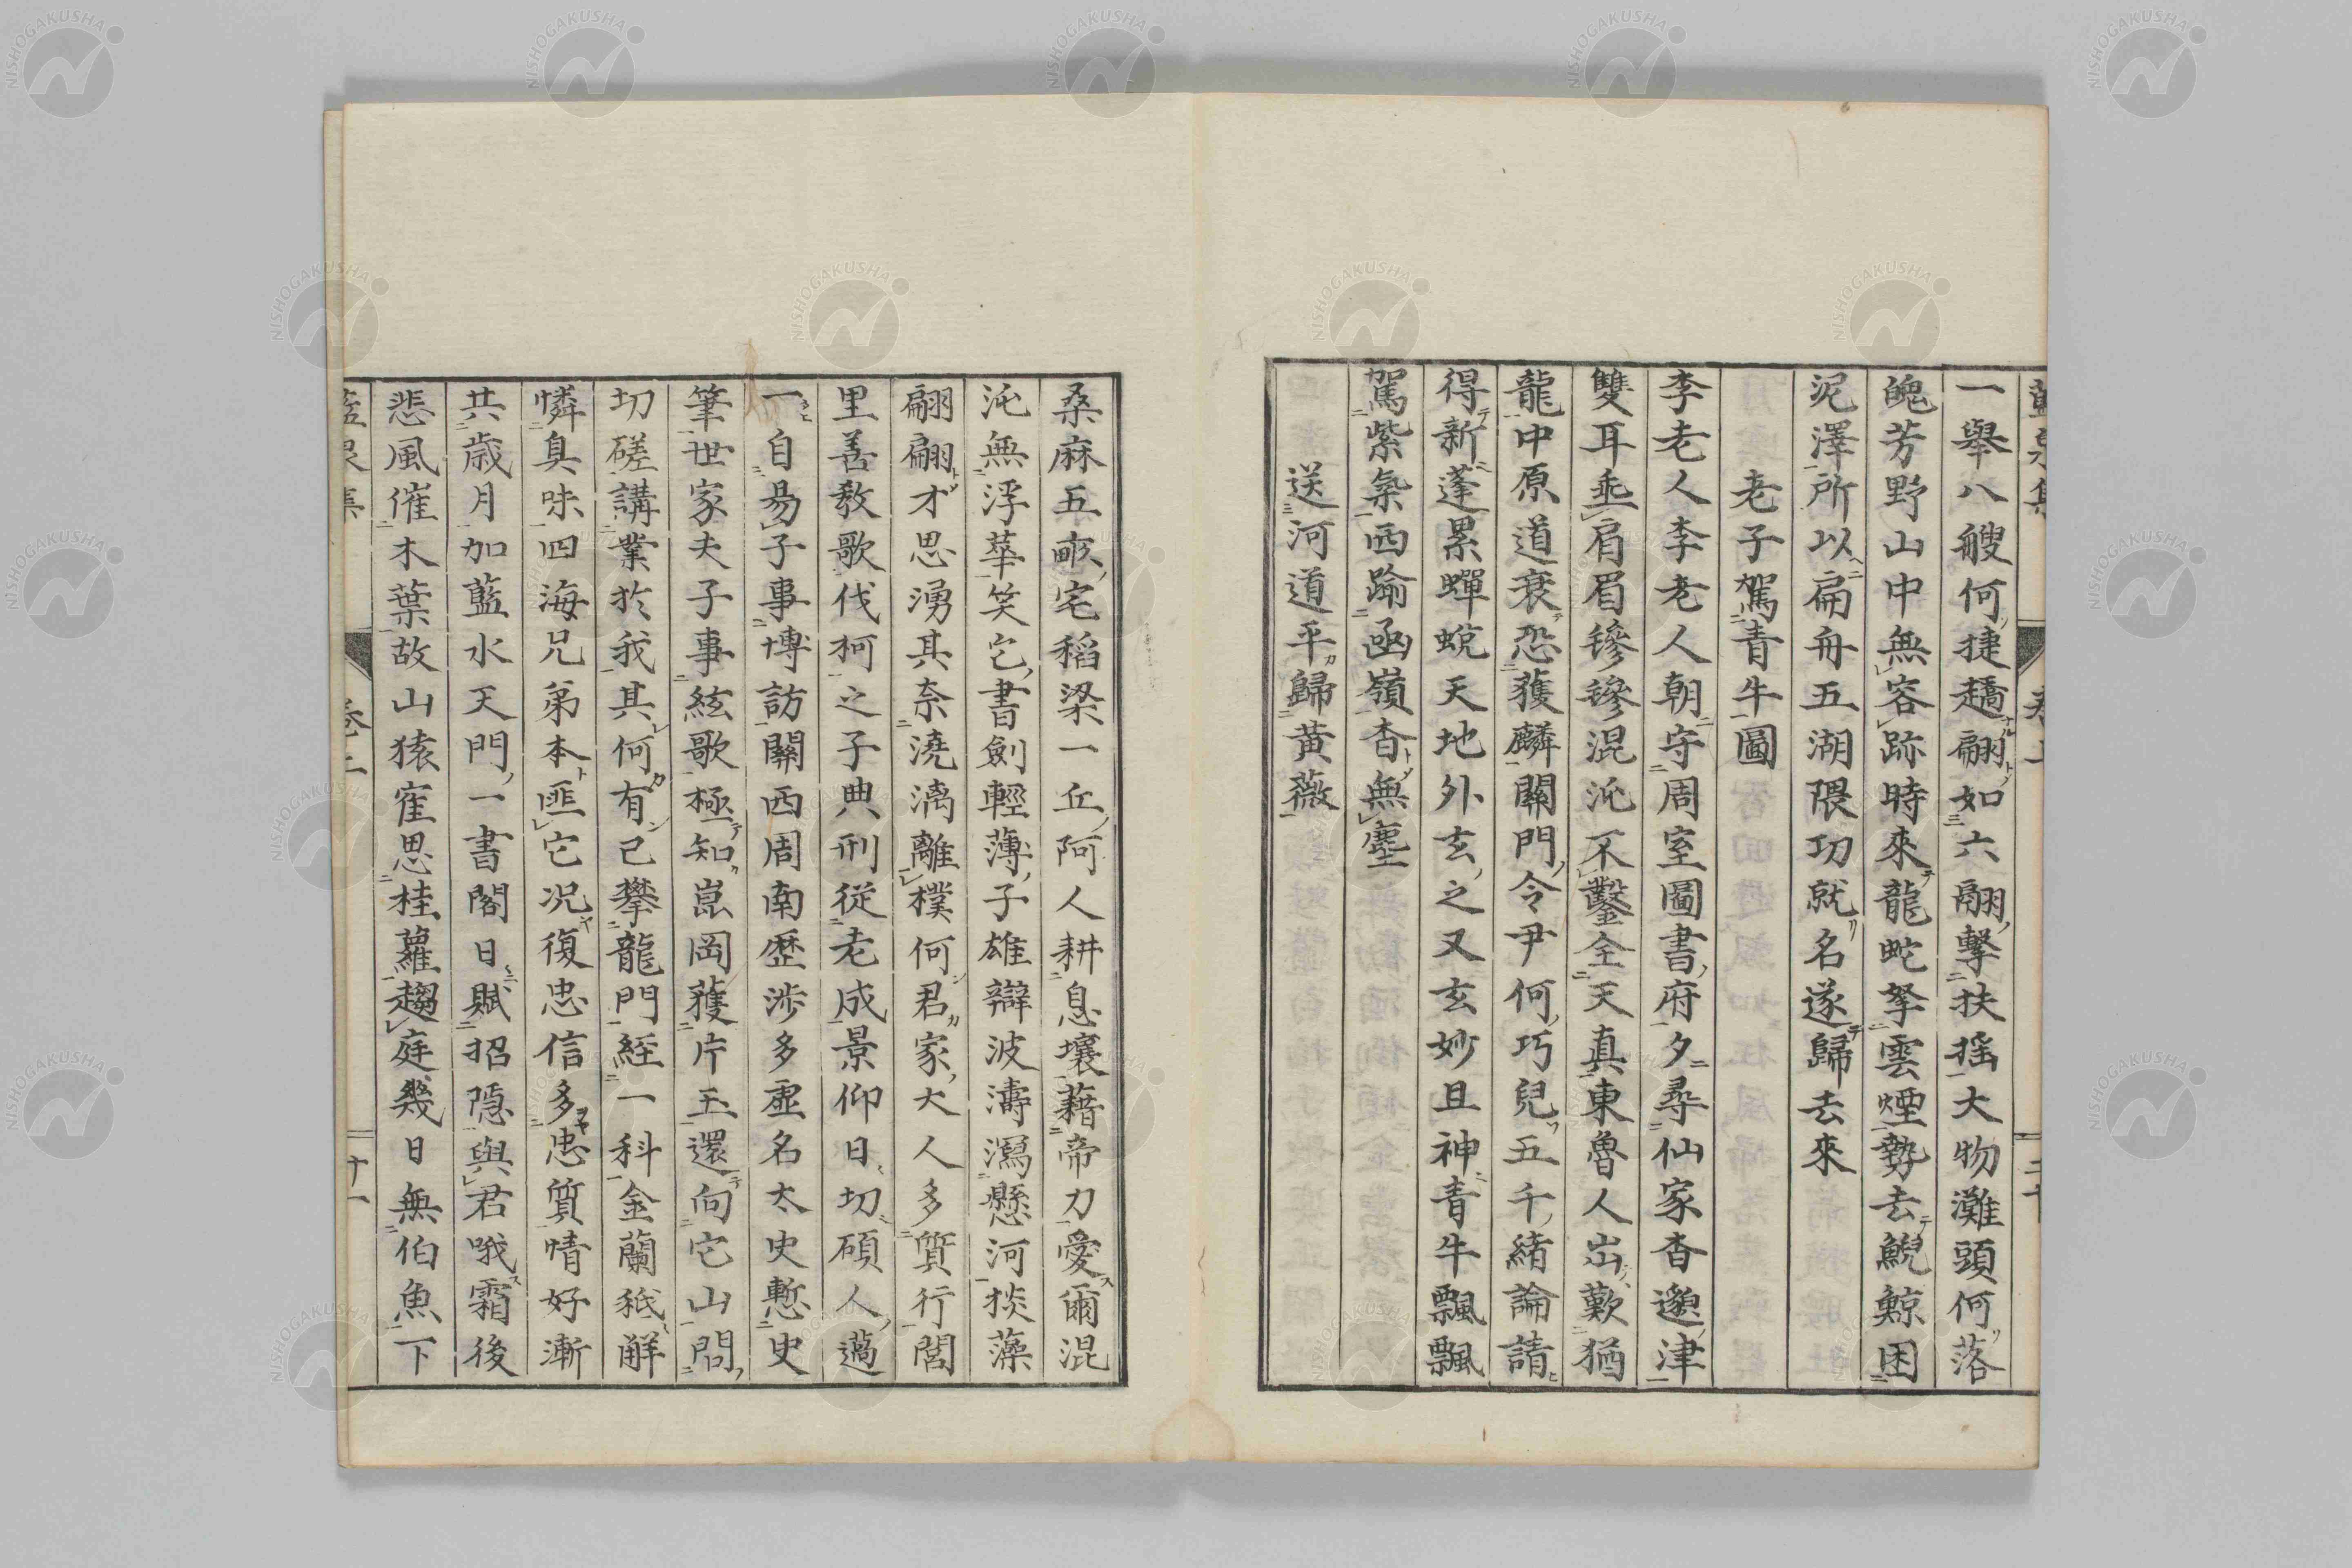 一舉八艘何捷趫翩如六翮擊扶搖大物灘頭何落
魄芳野山中無容跡時來龍蛇拏雲煙勢去鯢鯨困
泥澤所以扁舟五湖隈功就名遂歸去來
老子駕青牛圖
李老人李老人朝守周室圖書府夕尋仙家杳邈津
雙耳垂肩眉鬖鬖混沌不鑿全天真東魯人出歎猶
龍中原道衰恐獲麟關門令尹何巧兒五千緒論請
得新蓬累蟬蛻天地外玄之又玄妙且神青牛飄飄
駕紫氣西踰函嶺杳無塵
送河道平歸黃薇
桑麻五畝宅稻粱一丘阿人耕息壤藉帝力愛爾混
沌無浮華笑它書劍輕薄子雄辯波濤瀉懸河掞藻
翩翩才思湧其奈澆漓離樸何君家大人多質行閭
里善教歌伐柯之子典刑從老成景仰日切碩人薖
一自易子事博訪關西周南歷涉多虛名太史慙史
筆世家夫子事絃歌極知崑岡獲片玉還向它山問
切磋講業於我其何有已攀龍門經一科金蘭秖觧
憐臭味四海兄弟本匪它况復忠信多忠質情好漸
共歲月加藍水天門一書閣日賦招隱與君哦霜後
悲風催木葉故山猿寉思桂蘿趨庭幾日無伯魚下
NISHOGAKUSHA